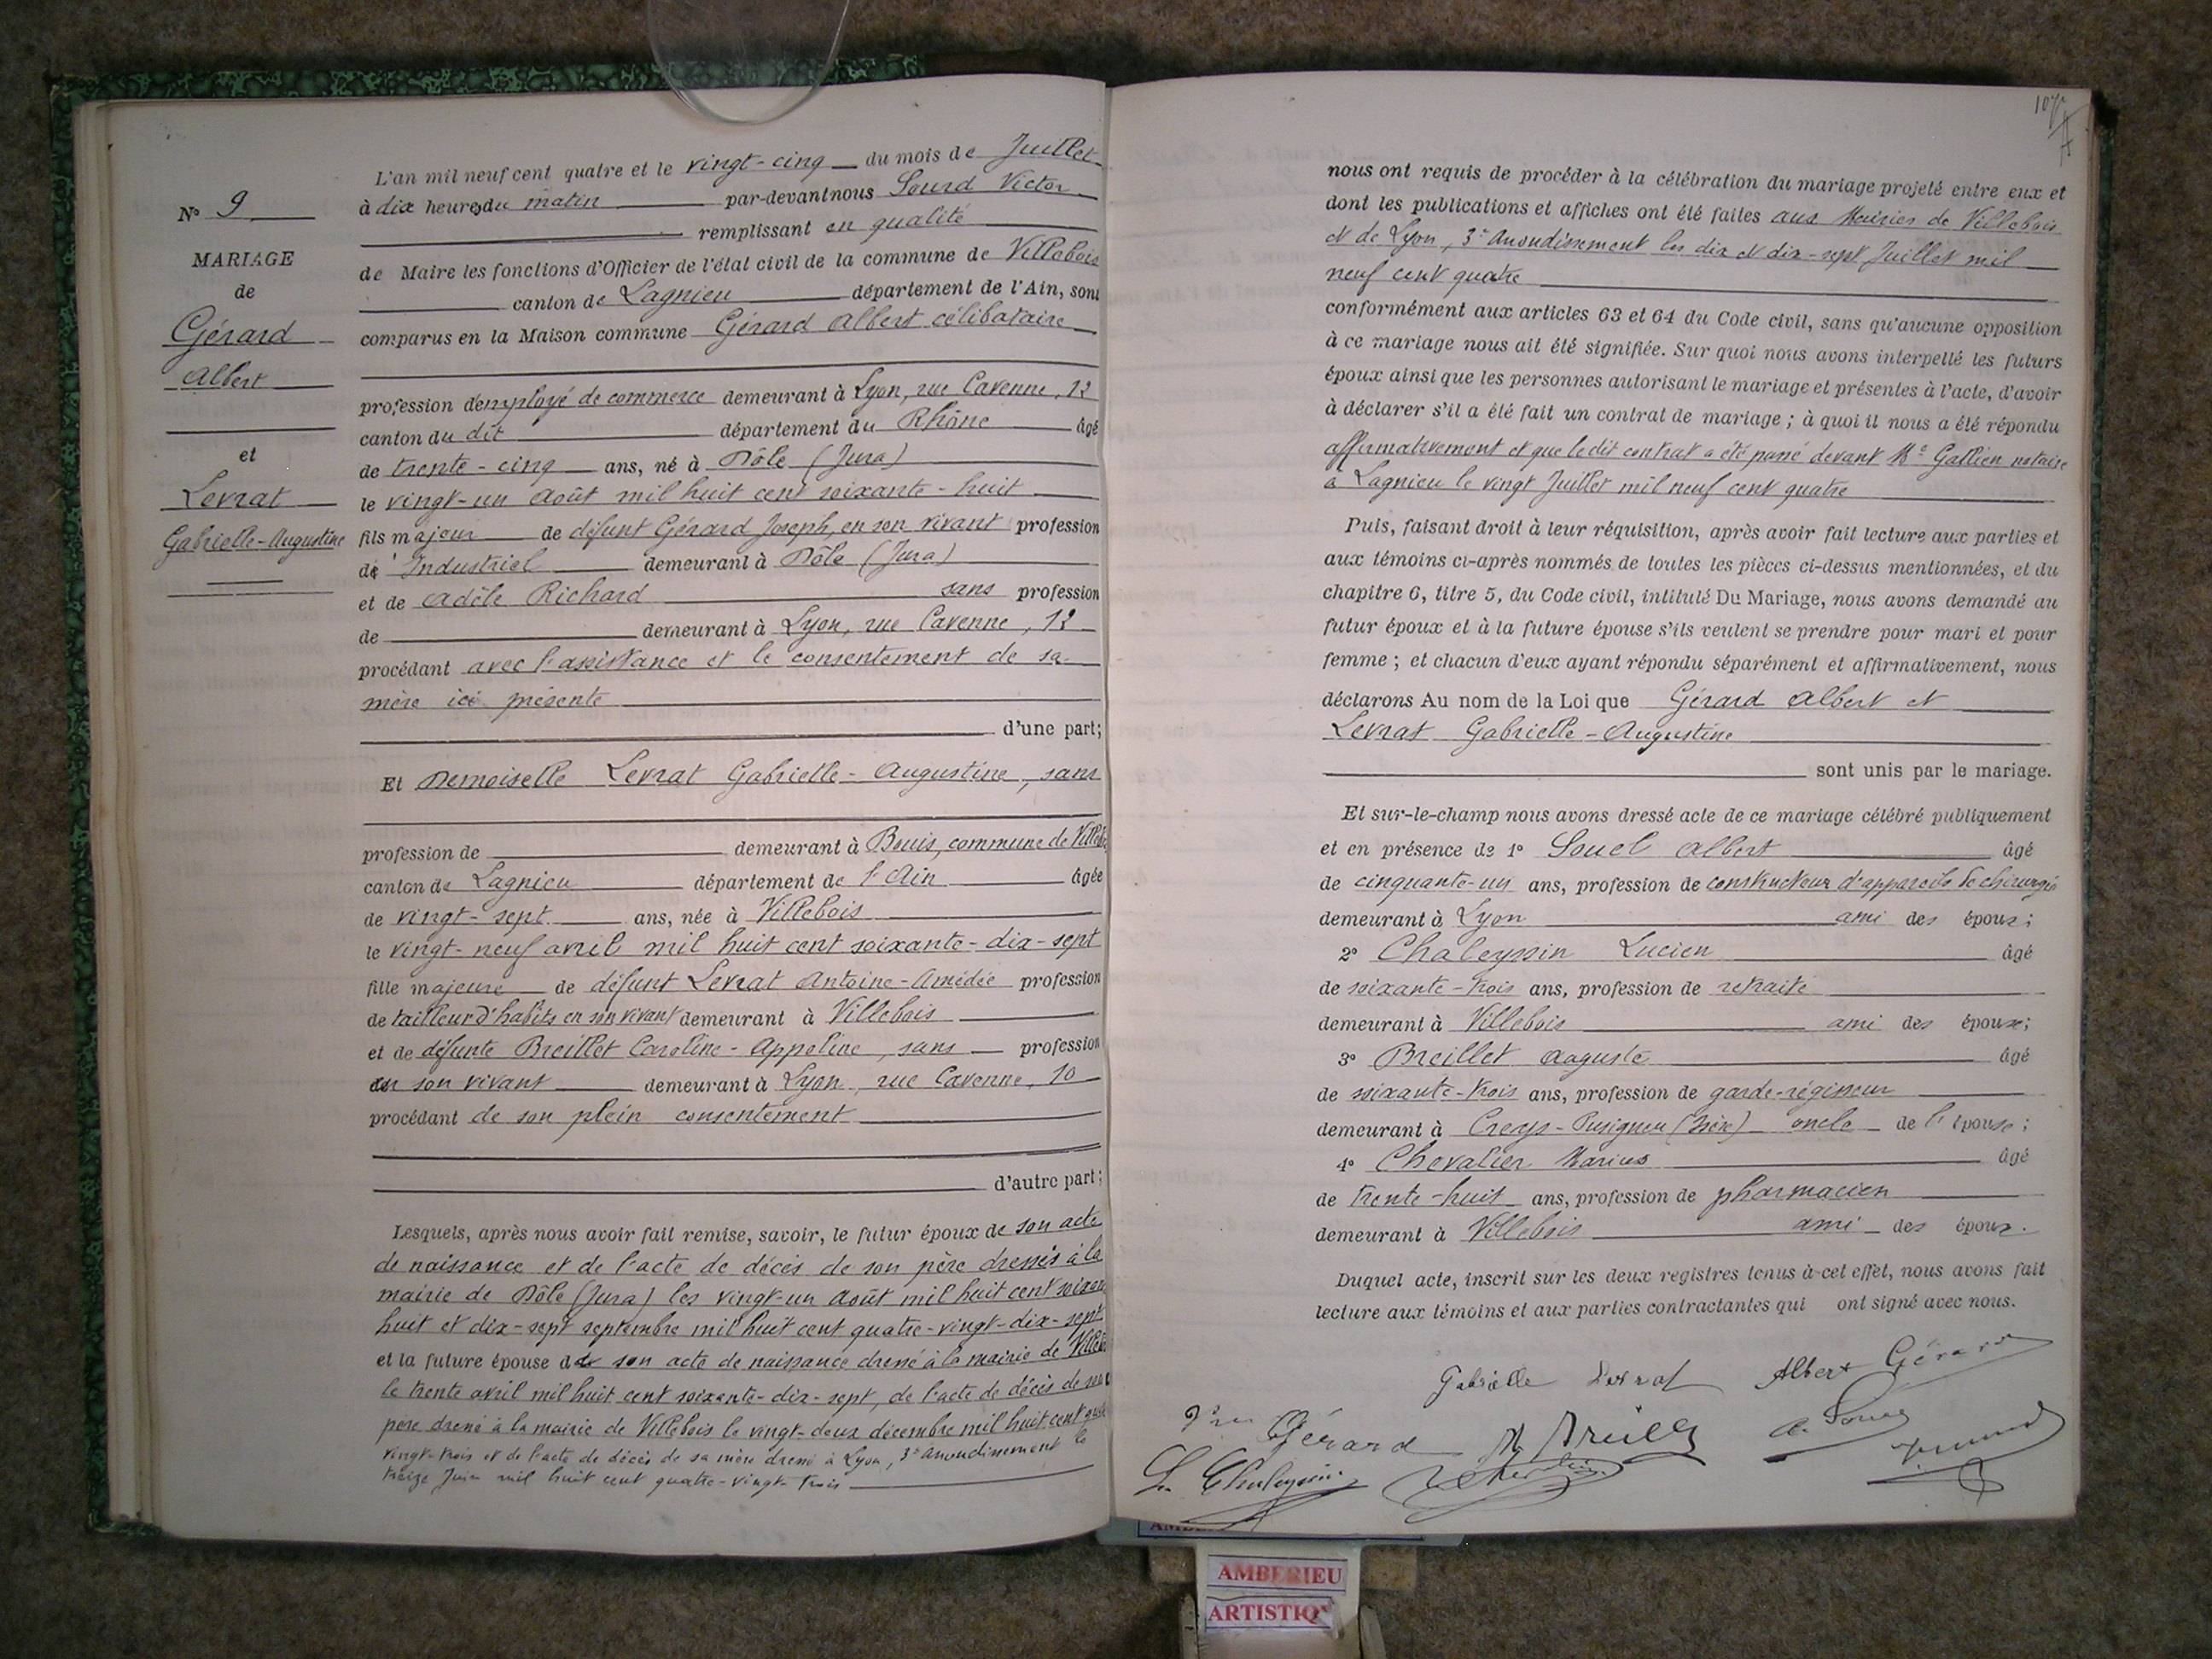 N° 9
MARIAGE
de
Gérard
Albert
et
Levrat
Gabrielle-Augustine
L'an mil neuf cent quatre et le vingt-cinq du mois de Juillet
à dix heures du matin par-devant nous Sourd Victor
remplissant en qualité
de Maire les fonctions d'Officier de l'état civil de la commune de Villebois
canton de Lagnieu département de l'Ain, sont
comparus en la Maison commune Gérard Albert célibataire
profession d'employé de commerce demeurant à Lyon, rue Cavenne, 12
canton du dit département du Rhône âgé
de trente-cinq ans, né à Dôle (Jura)
le vingt-un Août mil huit cent soixante-huit
fils majeur de défunt Gérard Joseph, en son vivant profession
d' Industriel demeurant à Dôle (Jura)
et de Adèle Richard sans profession
de demeurant à Lyon, rue Cavenne, 12
procédant avec l'assistance et le consentement de sa
mère ici présente
d'une part;
Et Demoiselle Levrat Gabrielle-Augustine, sans
profession de demeurant à Bouis, commune de Villebois
canton de Lagnieu département de l'Ain âgée
de vingt-sept ans, née à Villebois
le vingt-neuf avril mil huit cent soixante-dix-sept
fille majeure de défunt Levrat Antoine-Amédée profession
de tailleur d'habits en son vivant demeurant à Villebois
et de défunte Breillet Caroline-Appoline, sans profession
en son vivant demeurant à Lyon, rue Cavenne, 10
procédant de son plein consentement
d'autre part;
Lesquels, après nous avoir fait remise, savoir, le futur époux de son acte
de naissance et de l'acte de décès de son père dressés à la
mairie de Dôle (Jura) les vingt-un Août mil huit cent soixante
huit et dix-sept septembre mil huit cent quatre-vingt-dix-sept
et la future épouse de son acte de naissance dressé à la mairie de Villebois
le trente avril mil huit cent soixante-dix-sept, de l'acte de décès de son
père dressé à la mairie de Villebois le vingt-deux décembre mil huit cent quatre
vingt-trois et de l'acte de décès de sa mère dressé à Lyon, 3e Arrondissement le
treize Juin mil huit cent quatre-vingt-trois
107
nous ont requis de procéder à la célébration du mariage projeté entre eux et
dont les publications et affiches ont été faites aux Mairies de Villebois
et de Lyon, 3e Arrondissement les dix et dix-sept Juillet mil
neuf cent quatre
conformément aux articles 63 et 64 du Code civil, sans qu'aucune opposition
à ce mariage nous ait été signifiée. Sur quoi nous avons interpellé les futurs
époux ainsi que les personnes autorisant le mariage et présentes à l'acte, d'avoir
à déclarer s'il a été fait un contrat de mariage; à quoi il nous a été répondu
affirmativement et que le dit contrat a été passé devant Me Gallien notaire
à Lagnieu le vingt Juillet mil neuf cent quatre
Puis, faisant droit à leur réquisition, après avoir fait lecture aux parties et
aux témoins ci-après nommés de toutes les pièces ci-dessus mentionnées, et du
chapitre 6, titre 5, du Code civil, intitulé Du Mariage, nous avons demandé au
futur époux et à la future épouse s'ils veulent se prendre pour mari et pour
femme; et chacun d'eux ayant répondu séparément et affirmativement, nous
déclarons Au nom de la Loi que Gérard Albert et
Levrat Gabrielle-Augustine
sont unis par le mariage.
Et sur-le-champ nous avons dressé acte de ce mariage célébré publiquement
et en présence de 1° Souel Albert âgé
de cinquante-un ans, profession de constructeur d'appareils de chirurgie
demeurant à Lyon ami des époux;
2° Chaleyssin Lucien âgé
de soixante-trois ans, profession de retraité
demeurant à Villebois ami des époux;
3° Breillet Auguste âgé
de soixante-trois ans, profession de garde-régisseur
demeurant à Creys-Pusignieu (Isère) oncle de l'épouse;
4° Chevalier Marius âgé
de trente-huit ans, profession de pharmacien
demeurant à Villebois ami des époux.
Duquel acte, inscrit sur les deux registres tenus à cet effet, nous avons fait
lecture aux témoins et aux parties contractantes qui ont signé avec nous.
Gabrielle Levrat Albert Gérard
Gérard
L. Chaleyssin
AMBERIEU
ARTISTIQ